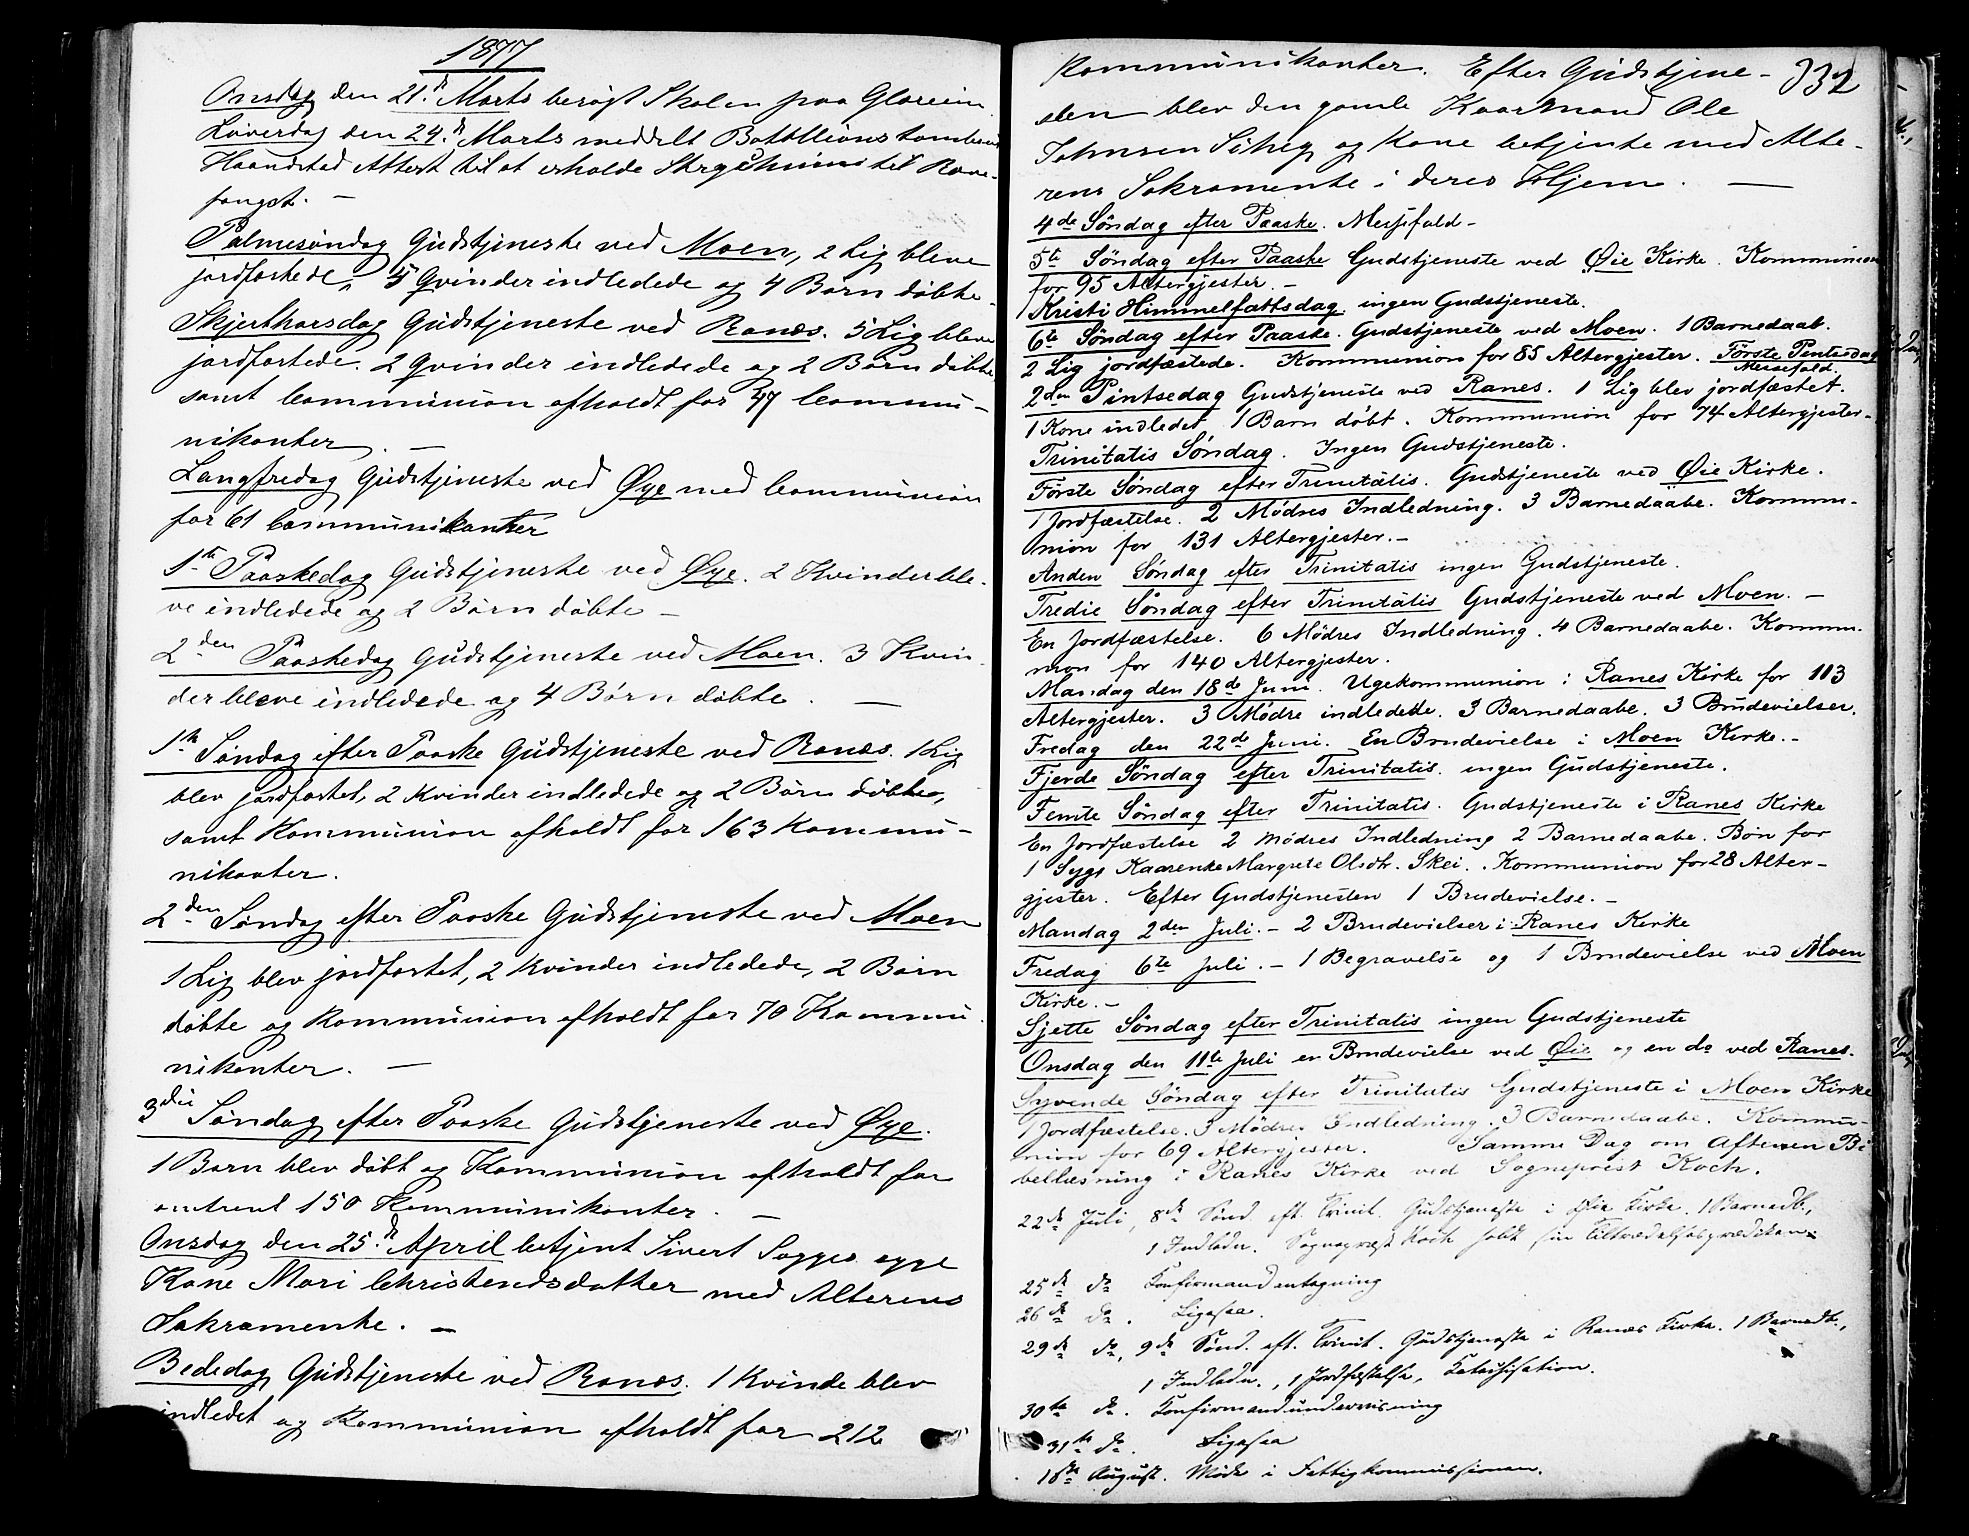 1877
Onsdag den 21. Marts besøgt Skolen paa Glæreim
Løverdag den 24. Marts meddelt Battllions
Haanstad Attest til at erholde Strychnini til Ræve-
fangst. —
Palmesøndag Gudstjeneste ved Moen, 2 Lig bleve
jordfæstede, 5 Qvinder indledede og 4 Børn døbte.
Skjerthorsdag Gudstjeneste ved Ranæs. 5 Lig bleve
jordfæstede. 2 Qvinder indledede og 2 Børn døbte,
samt Communion afholdt for 37 Commu-
nikanter. —
Langfredag Gudstjeneste ved Øye med Communion
for 61 Communikanter
1ste Paaskedag Gudstjeneste ved Øye. 2 Kvinder ble-
ve indledede og 2 Børn døbte —
2den Paaskedag Gudstjeneste ved Moen. 3 Kvin
der bleve indledede og 4 Børn døbte. —
1ste Søndag efter Paaske Gudstjeneste ved Ranæs. 1 Lig
blev jordfæstet, 2 Kvinder indledede og 2 Børn døbte,
samt Kommunion afholdt for 163 Kommu-
nikanter.
2den Søndag efter Paaske Gudstjeneste ved Moen
1 Lig blev jordfæstet, 2 Kvinder indledede, 2 Børn
døbte og Kommunion afholdt for 70 Kommu
nikanter. —
3die Søndag efter Paaske Gudstjeneste ved Øye.
1 Barn blev døbt og Kommunion afholdt for
omtrent 150 Kommunikanter. —
Onsdag den 25. April betjent Sivert
Kone Mari Christensdatter med Alterens
Sakramente. —
Bededag Gudstjeneste ved Ranæs. 1 Kvinde blev
indledet og Kommunion afholdt for 212
332
Kommunikanter. Efter Gudstjene-
sten blev den gamle Kaarmand Ole
Johnsen og Kone betjente med Alte-
rens Sakramente i deres Hjem. —
4de Søndag efter Paaske. Messefald -
5te Søndag efter Paaske Gudstjeneste ved Øie Kirke. Kommunion
for 95 Altergjester. -
Kristi Himmelfartsdag ingen Gudstjeneste.
6te Søndag efter Paaske. Gudstjeneste ved Moen. 1 Barnedaab.
2 Lig jordfæstede. Kommunion for 85 Altergjester. Förste Pintsedag
Messefald.
2den Pintsedag Gudstjeneste ved Ranes. 1 Lig blev jordfæstet.
1 Kone indledet 1 Barn döbt. Kommunion for 74 Altergjester-
Trinitatis Söndag. Ingen Gudstjeneste.
Förste Söndag efter Trinitatis. Gudstjeneste ved Øie Kirke.
1 Jordfæstelse. 2 Mødres Indledning. 3 Barnedaabe. Kommu-
nion for 131 Altergjester. -
Anden Söndag efter Trinitatis ingen Gudstjeneste.
Tredie Söndag efter Trinitatis Gudstjeneste ved Moen. -
En Jordfæstelse. 6 Mödres Indledning. 4 Barnedaabe. Kommu-
nion for 140 Altergjester.
Mandag den 18de Juni. Ugekommunion i Ranes Kirke for 113
Altergjester. 3 Mödre indledede. 3 Barnedaabe. 3 Brudevielser.
Fredag den 22de Juni. En Brudevielse i Moen Kirke. -
Fjerde Söndag efter Trinitatis. ingen Gudstjeneste.
Femte Söndag efter Trinitatis. Gudstjeneste i Ranes Kirke
En Jordfæstelse 2 Mödres Indledning 2 Barnedaabe. Bön for
1 Syge Kaarenke Margrete Olsdtr. Skei. Kommunion for 28 Alter-
gjester. Efter Gudstjenesten 1 Brudevielse. -
Mandag 2den Juli. - 2 Brudevielser i Ranes Kirke
Fredag 6te Juli. - 1 Begravelse og 1 Brudevielse ved Moen
Kirke. -
Sjette Söndag efter Trinitatis ingen Gudstjeneste
Onsdag den 11te Juli en Brudevielse ved Øie og en do ved Ranes.
Syvende Söndag efter Trinitatis Gudstjeneste i Moen Kirke
1 Jordfæstelse. 3 Mödres Indledning. 3 Barnedaabe. Kommu-
nion for 69 Altergjester. Samme Dag om Aftenen Bi
bellæsning i Ranes Kirke ved Sogneprest Koch.
22de Juli, 8de Sönd. eft. Trinit. Gudstjeneste i Øie Kirke. 1 Barnedb.,
1 Indledn. Sogneprest Koch holdt sin Tiltrædelsesprædiken.
25de do Konfirmandantagning
26de do. Ligesaa.
29de do, 9de Sönd. eft. Trinit. Gudstjeneste i Ranæs Kirke. 1 Barnedb.,
1 Indledn., 1 Jordfæstelse, Katechisation.
30te do. Konfirmandundervisning
31te do. Ligesaa
16de August. Møde i Fattigkommissionen.